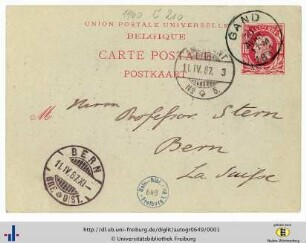 1960 C 210
UNION POSTALE UNIVERSELLE
BELGIQUE
CARTE POSTALE
POSTKAART
GAND
11.IV.87. 3
No 5.
M Herrn Professor Stern
Bern
La Suisse
BERN
11.IV.87.XI-
BRF. DIST.
http://dl.ub.uni-freiburg.de/diglit/autogr0649/0001
© Universitätsbibliothek Freiburg